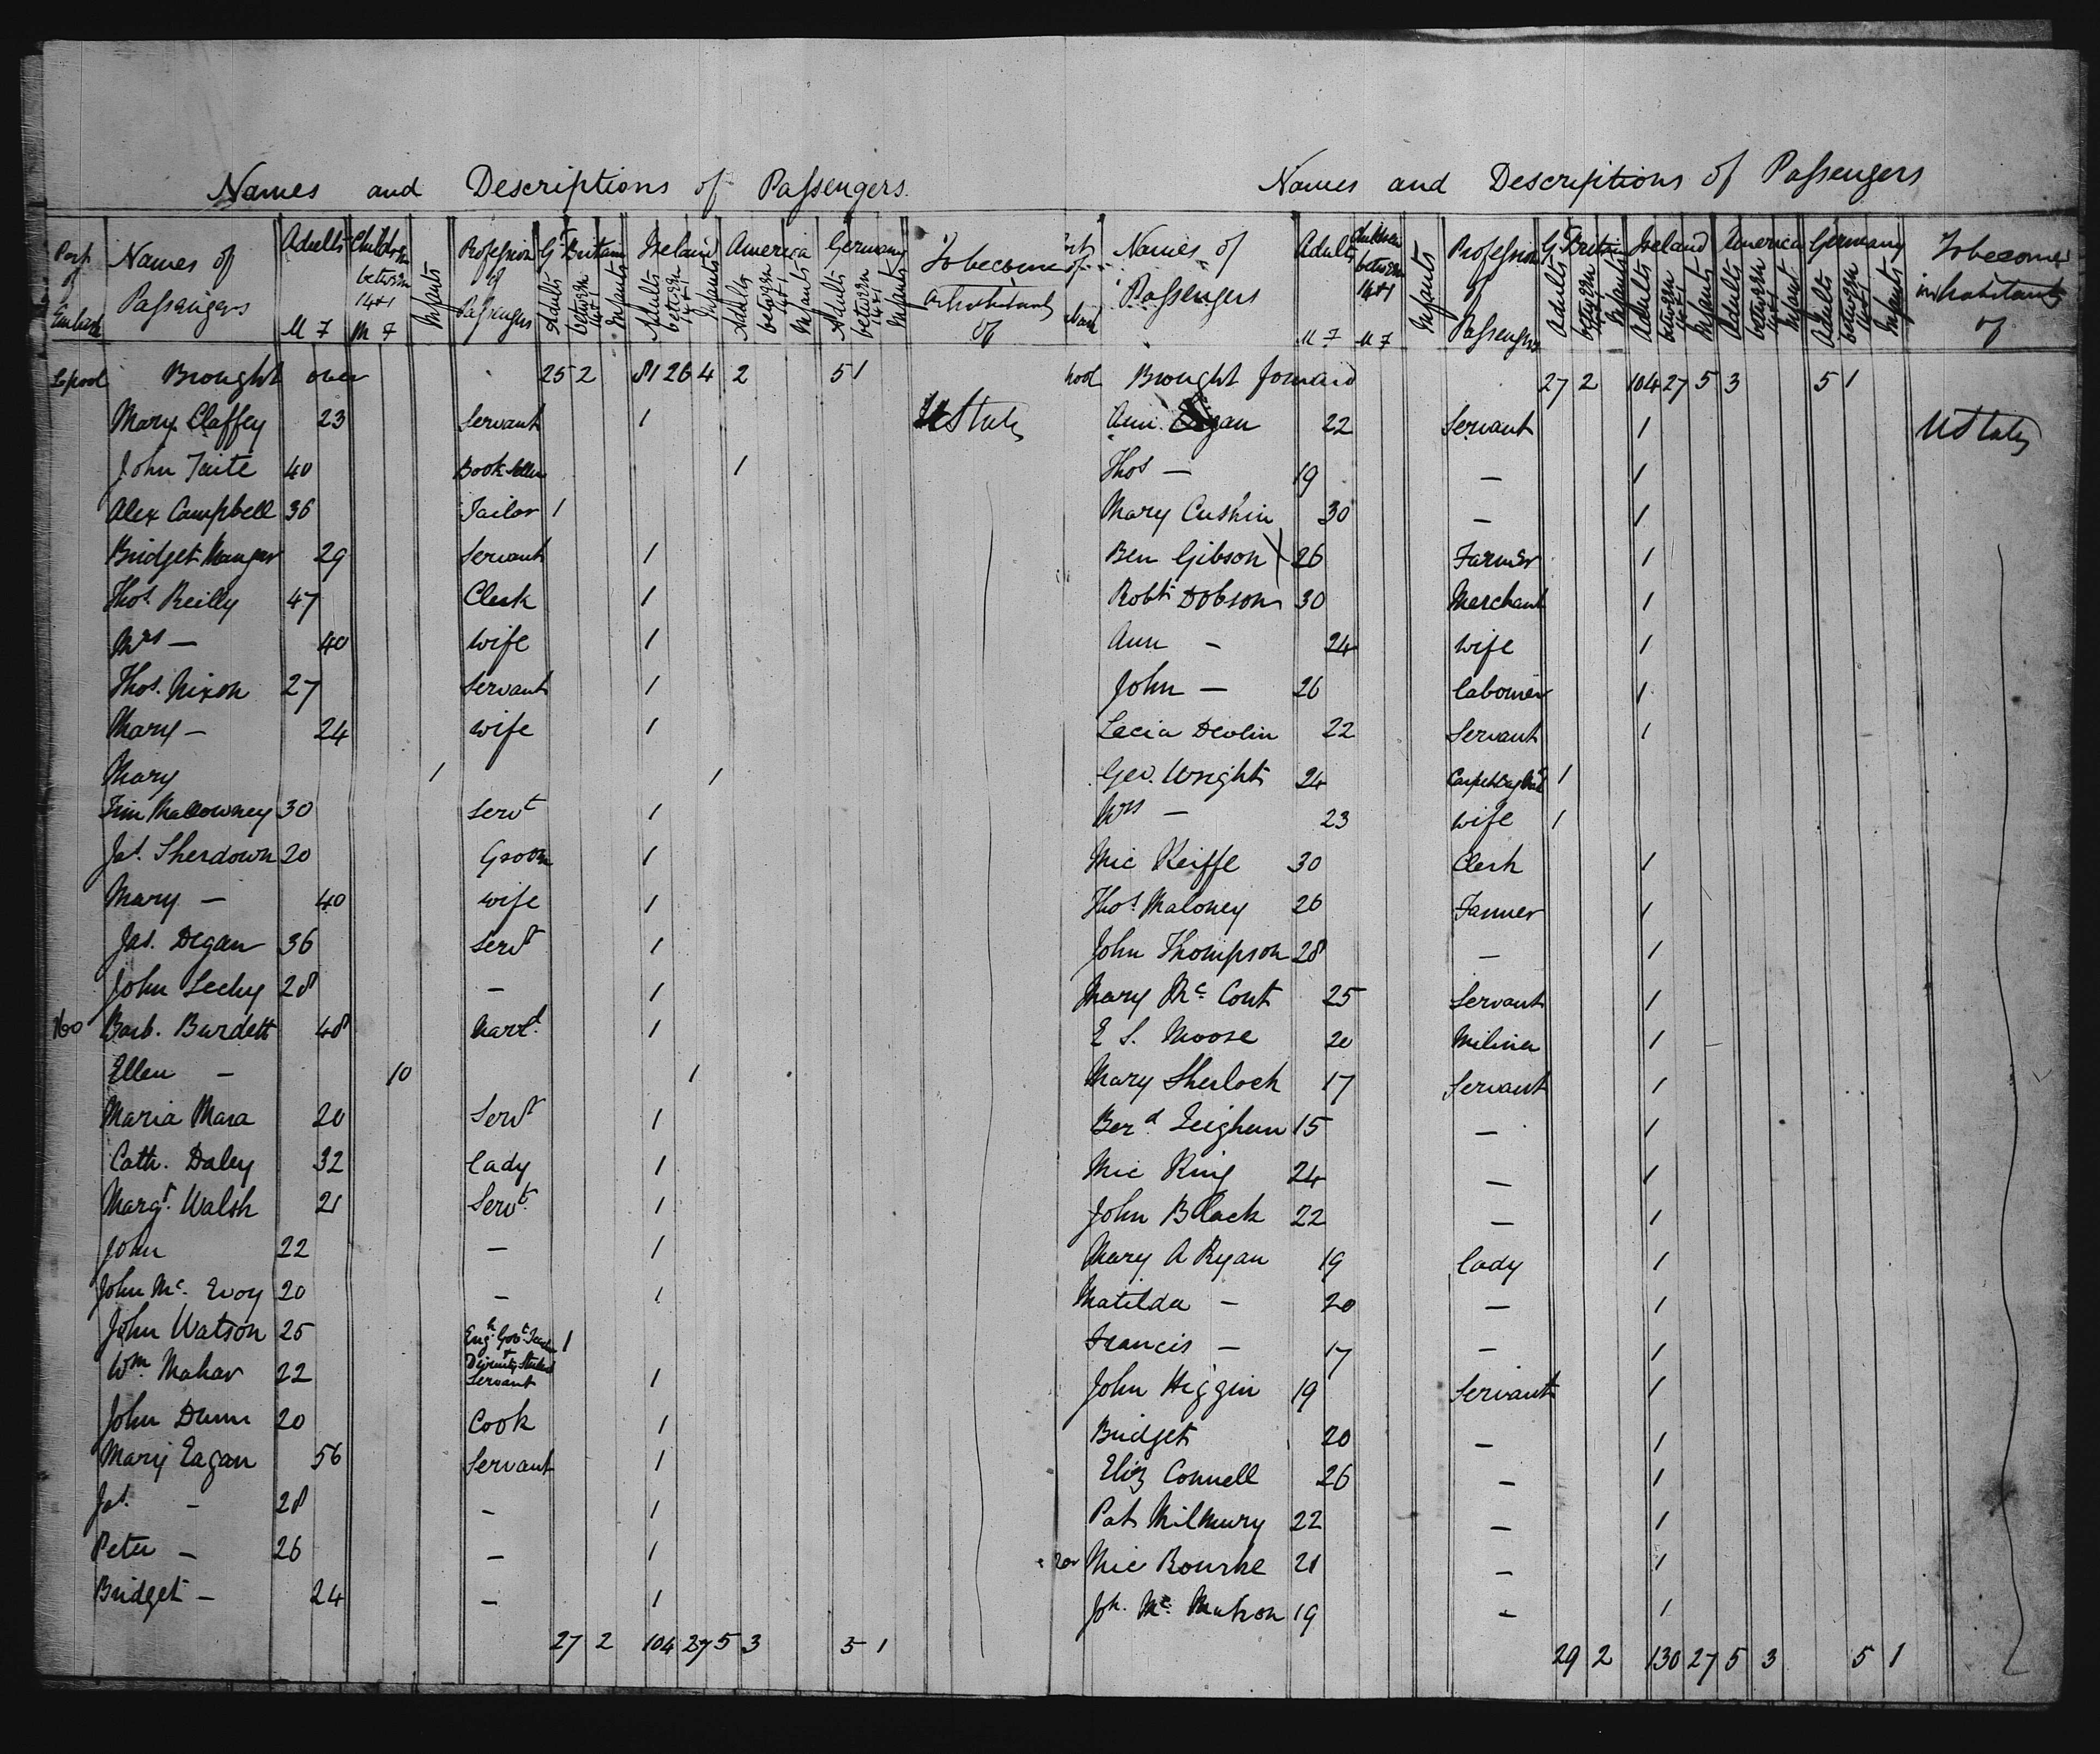 Names and Descriptions of Passengers.
Port of Embark Names of Passengers Adults M F Children between 14 & 1 M F Infants Profession of Passengers Gt Britain Adults between 14 & 1 Infants Ireland Adults between 14 & 1 Infants America Adults between 14 & 1 Infants Germany Adults between 14 & 1 Infants To become inhabitants of
Lpool Brought over 25 2 81 26 4 2 5 1
Mary Claffey 23 Servant 1 U States
John Taite 40 Book Seller 1
Alex Campbell 36 Tailor 1
Bridget 29 Servant 1
Thos. Reilly 47 Clerk 1
Mrs — 40 wife 1
Thos. Nixon 27 Servant 1
Mary — 24 wife 1
Mary 1 1
Tim Mallowney 30 Servt 1
Jas. Sherdown 20 Groom 1
Mary — 40 wife 1
Jas. Degan 36 Servt 1
John Lechy 28 — 1
Barb. Burdett 48 Marrd. 1
Ellen — 10 1
Maria Mara 20 Servt 1
Cath. Daley 32 Lady 1
Margt. Walsh 21 Servt. 1
John 22 — 1
John Mc. Evoy 20 — 1
John Watson 25 Engh Govt Teacher + Divinity Student 1
Wm. Mahar 22 Servant 1
John Dunn 20 Cook 1
Mary Eagan 56 Servant 1
Jas. — 28 — 1
Peter — 26 — 1
Bridget — 24 — 1
27 2 104 27 5 3 5 1
Names and Descriptions of Passengers
Names of Passengers Adults M F Children between 14 & 1 M F Infants Profession of Passengers Gt Britain Adults between 14 & 1 Infants Ireland Adults between 14 & 1 Infants America Adults between 14 & 1 Infants Germany Adults between 14 & 1 Infants To become inhabitants of
pool Brought forward 27 2 104 27 5 3 5 1
Ann. Eagan 22 Servant 1 U States
Thos — 19 — 1
Mary Cushin 30 — 1
Ben Gibson X 26 Farmer 1
Robt Dobson 30 Merchant 1
Ann — 24 wife 1
John — 26 Labourer 1
Lecia Devlin 22 Servant 1
Geo. Wright 24 1
Mrs — 23 wife 1
Mic Keiffe 30 Clerk 1
Thos. Maloney 26 Farmer 1
John Thompson 28 — 1
Mary Mc. Cout 25 Servant 1
E S. Moose 20 Miliner 1
Mary Sherlock 17 Servant 1
Berd Leighun 15 — 1
Mic King 24 — 1
John Black 22 — 1
Mary A Ryan 19 Lady 1
Matilda — 20 — 1
Francis — 17 — 1
John Higgin 19 Servant 1
Bridget 20 — 1
Eliz Connell 26 — 1
Pat Milmury 22 — 1
Mic Bourke 21 — 1
Joh. Mc. 19 — 1
29 2 130 27 5 3 5 1